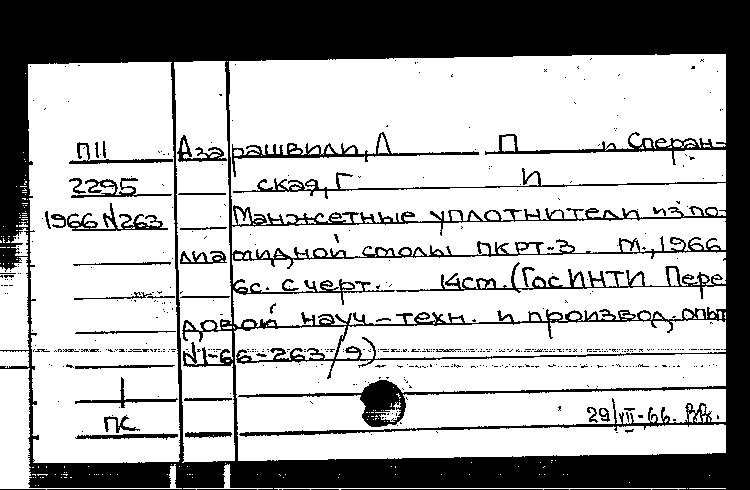 П11 Азарашвили, Л П и Сперан-
2295 ская, Г И
1966 N263 Манжетные уплотнители из по-
лиамидной смолы ПКРТ-3. М., 1966
6с. с черт. 14см. (ГосИНТИ Пере
довой науч-техн. и производ. опыт
N1-66-263/9)
ПС
29/VII-66.